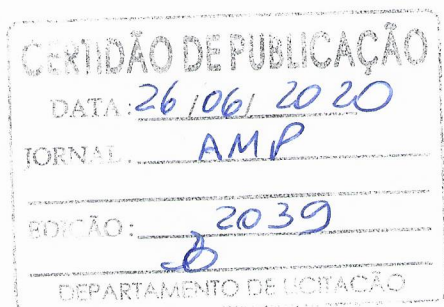 CERTIDÃO DE PUBLICAÇÃO
DATA: 26/06/2020
JORNAL: AMP
EDIÇÃO: 2039
DEPARTAMENTO DE LICITAÇÃO